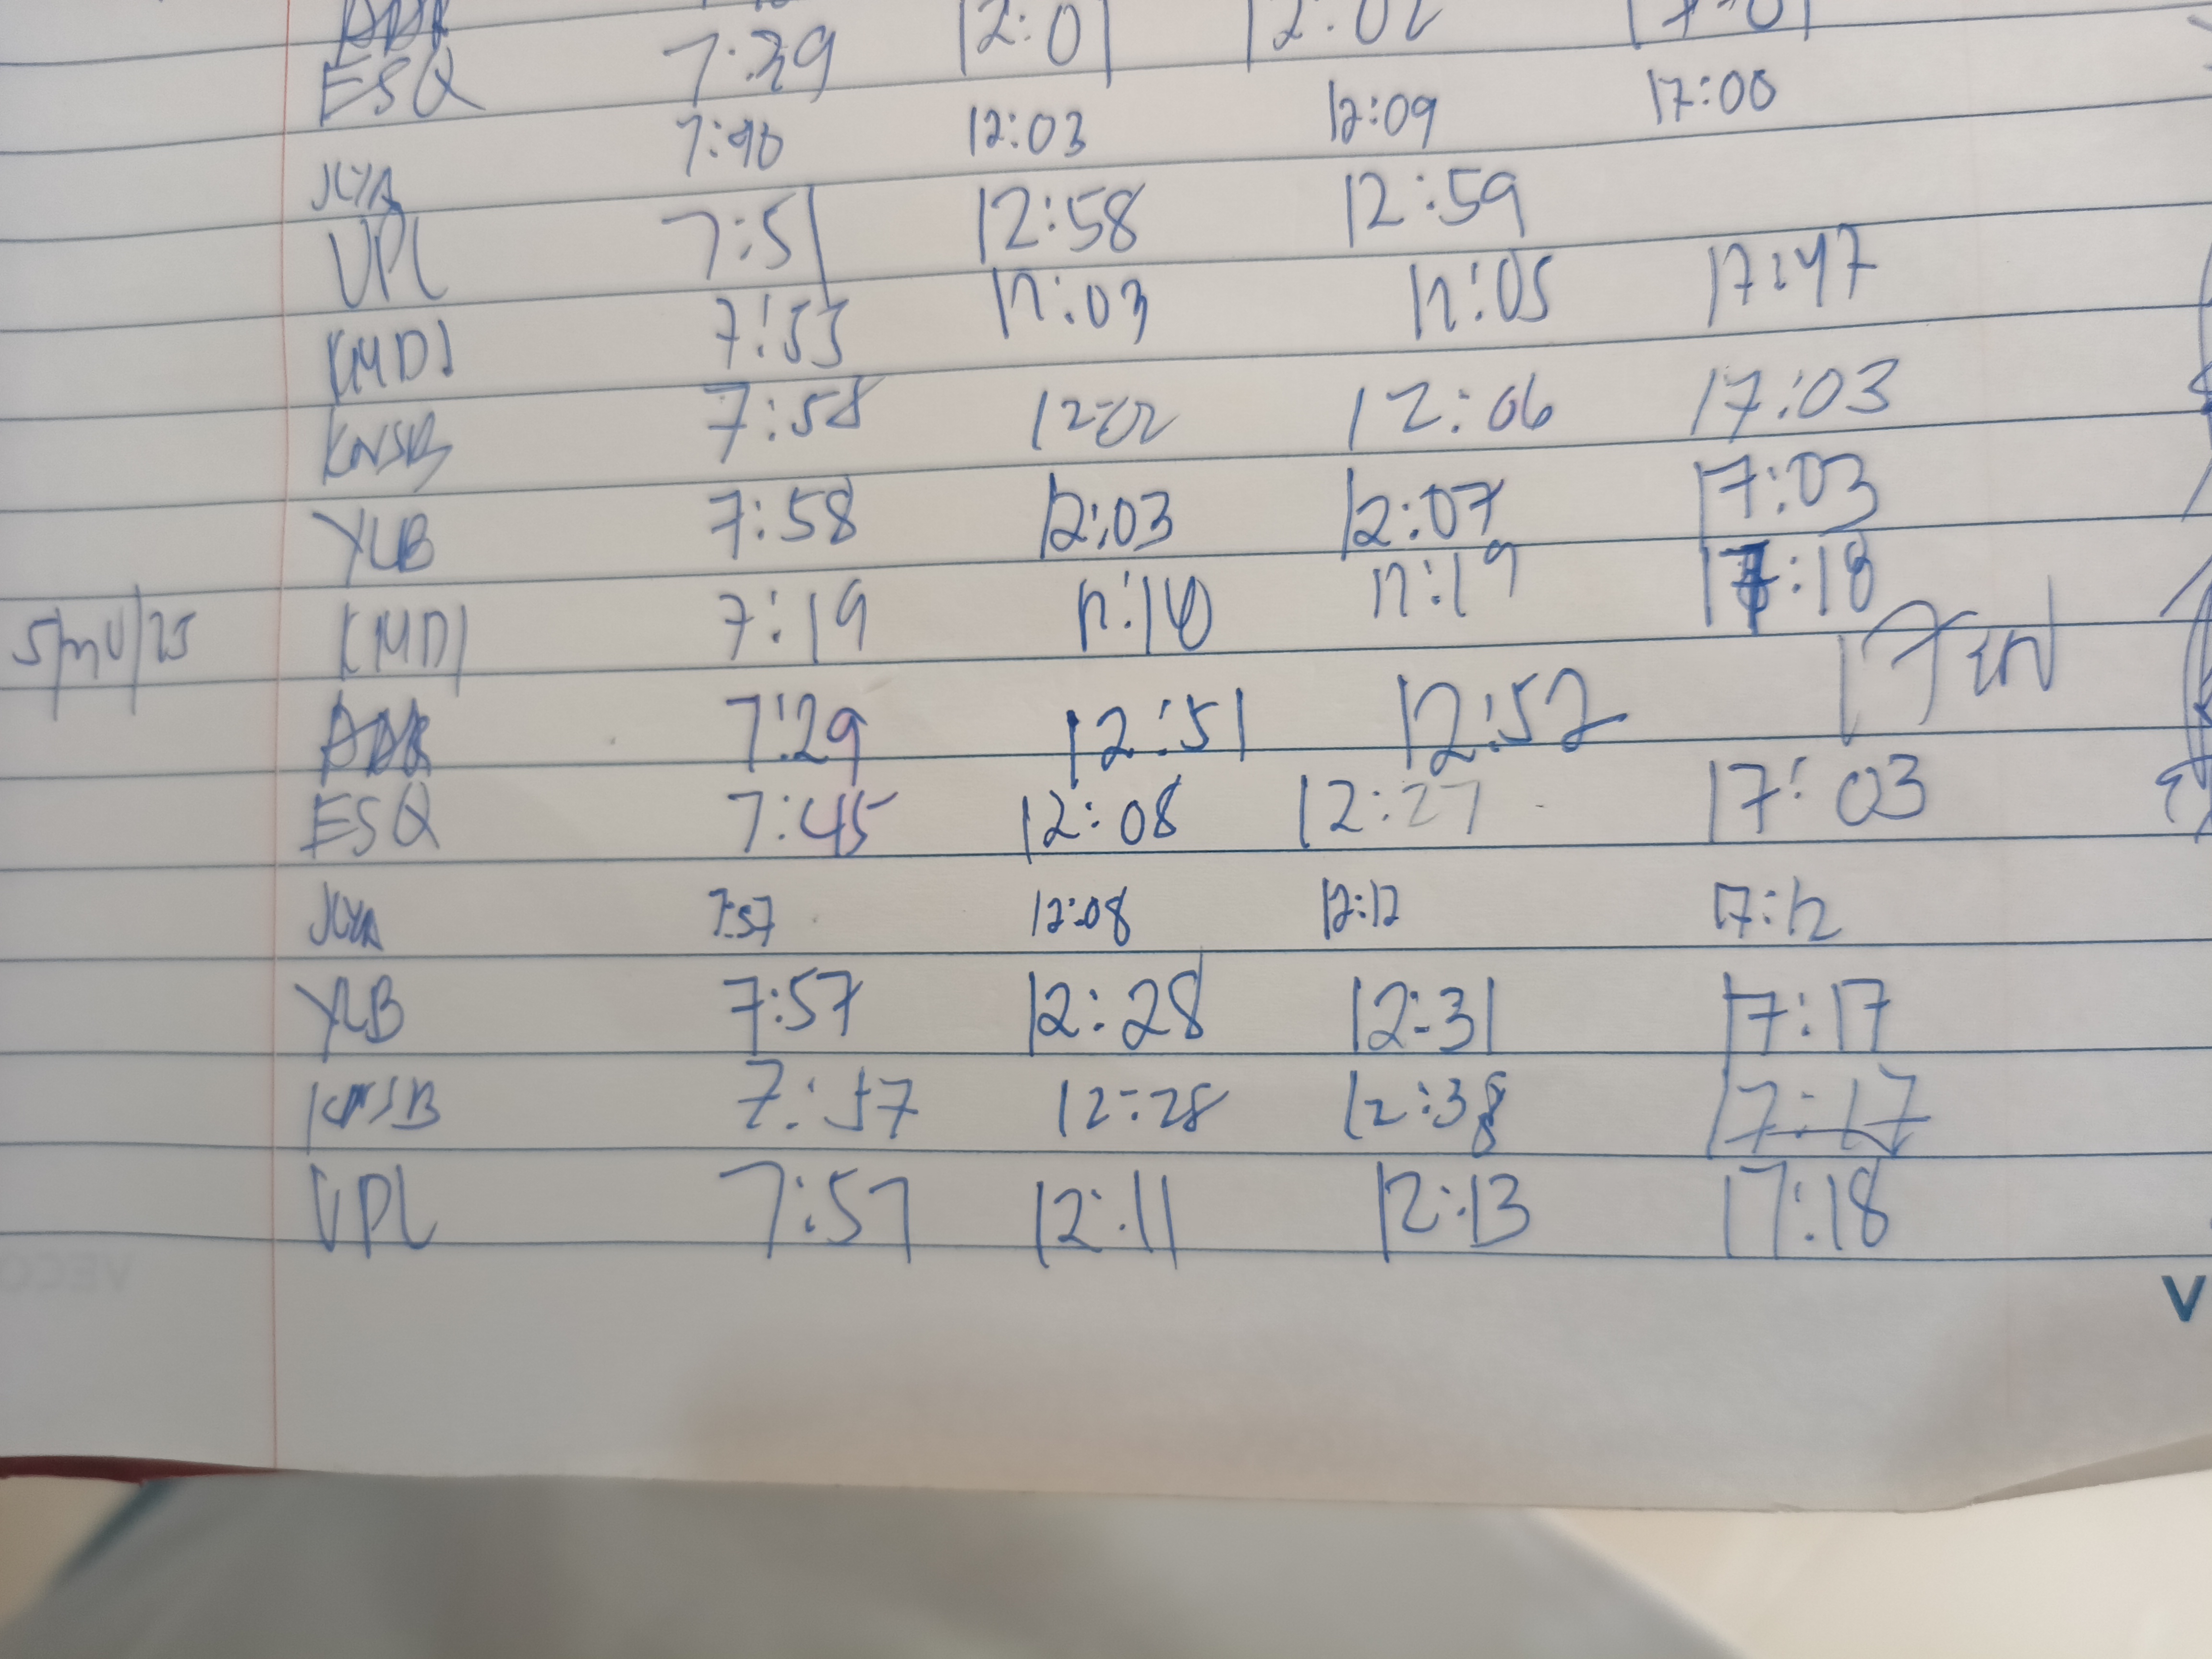 7:39 12:01 12:02 17:01
ESQ 7:40 12:03 12:09 17:00
JLYA
VPL 7:51 12:58 12:59
KMDJ 7:53 12:03 12:05 17:47
KNSB 7:58 12:02 12:06 17:03
YLB 7:58 12:03 12:07 17:03
KMDJ 7:19 12:19 17:18
7:29 12:51 12:52
ESQ 7:45 12:08 12:27 17:03
JLYA 7:57 12:08 12:12 17:12
YLB 7:57 12:28 12:31 17:17
KNSB 7:57 12:28 12:38 17:17
VPL 7:57 12:11 12:13 17:18
V